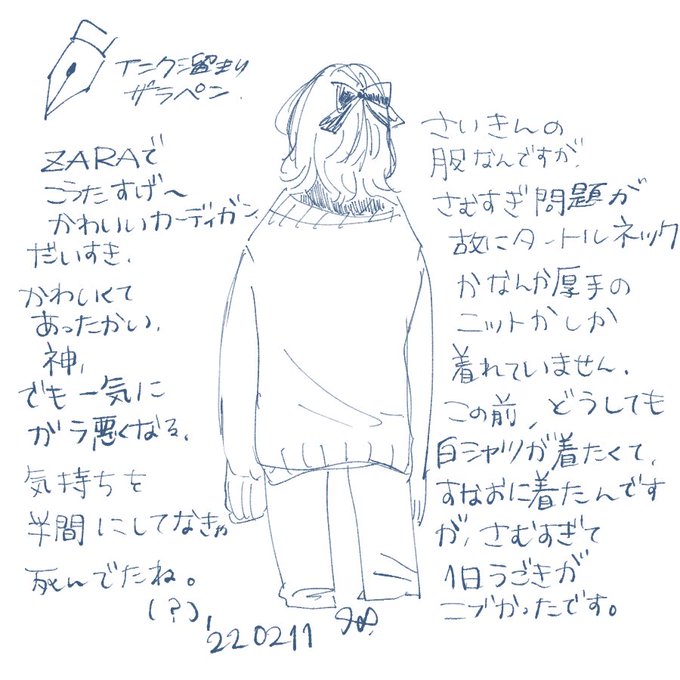 インク溜まり
ザラペン.
ZARAで
こうたすげ〜
かわいいカーディガン.
だいすき.
かわいくて
あったかい.
神,
でも一気に
ガラ悪くなる.
気持ちを
半間にしてなきゃ
死んでたね。
(?),
220211
さいきんの
服なんですが,
さむすぎ問題が
故にタートルネック
かなんか厚手の
ニットかしか
着れていません.
この前,どうしても
白シャツが着たくて,
すなおに着たんです
が,さむすぎて
1日うごきが
ニブかったです。